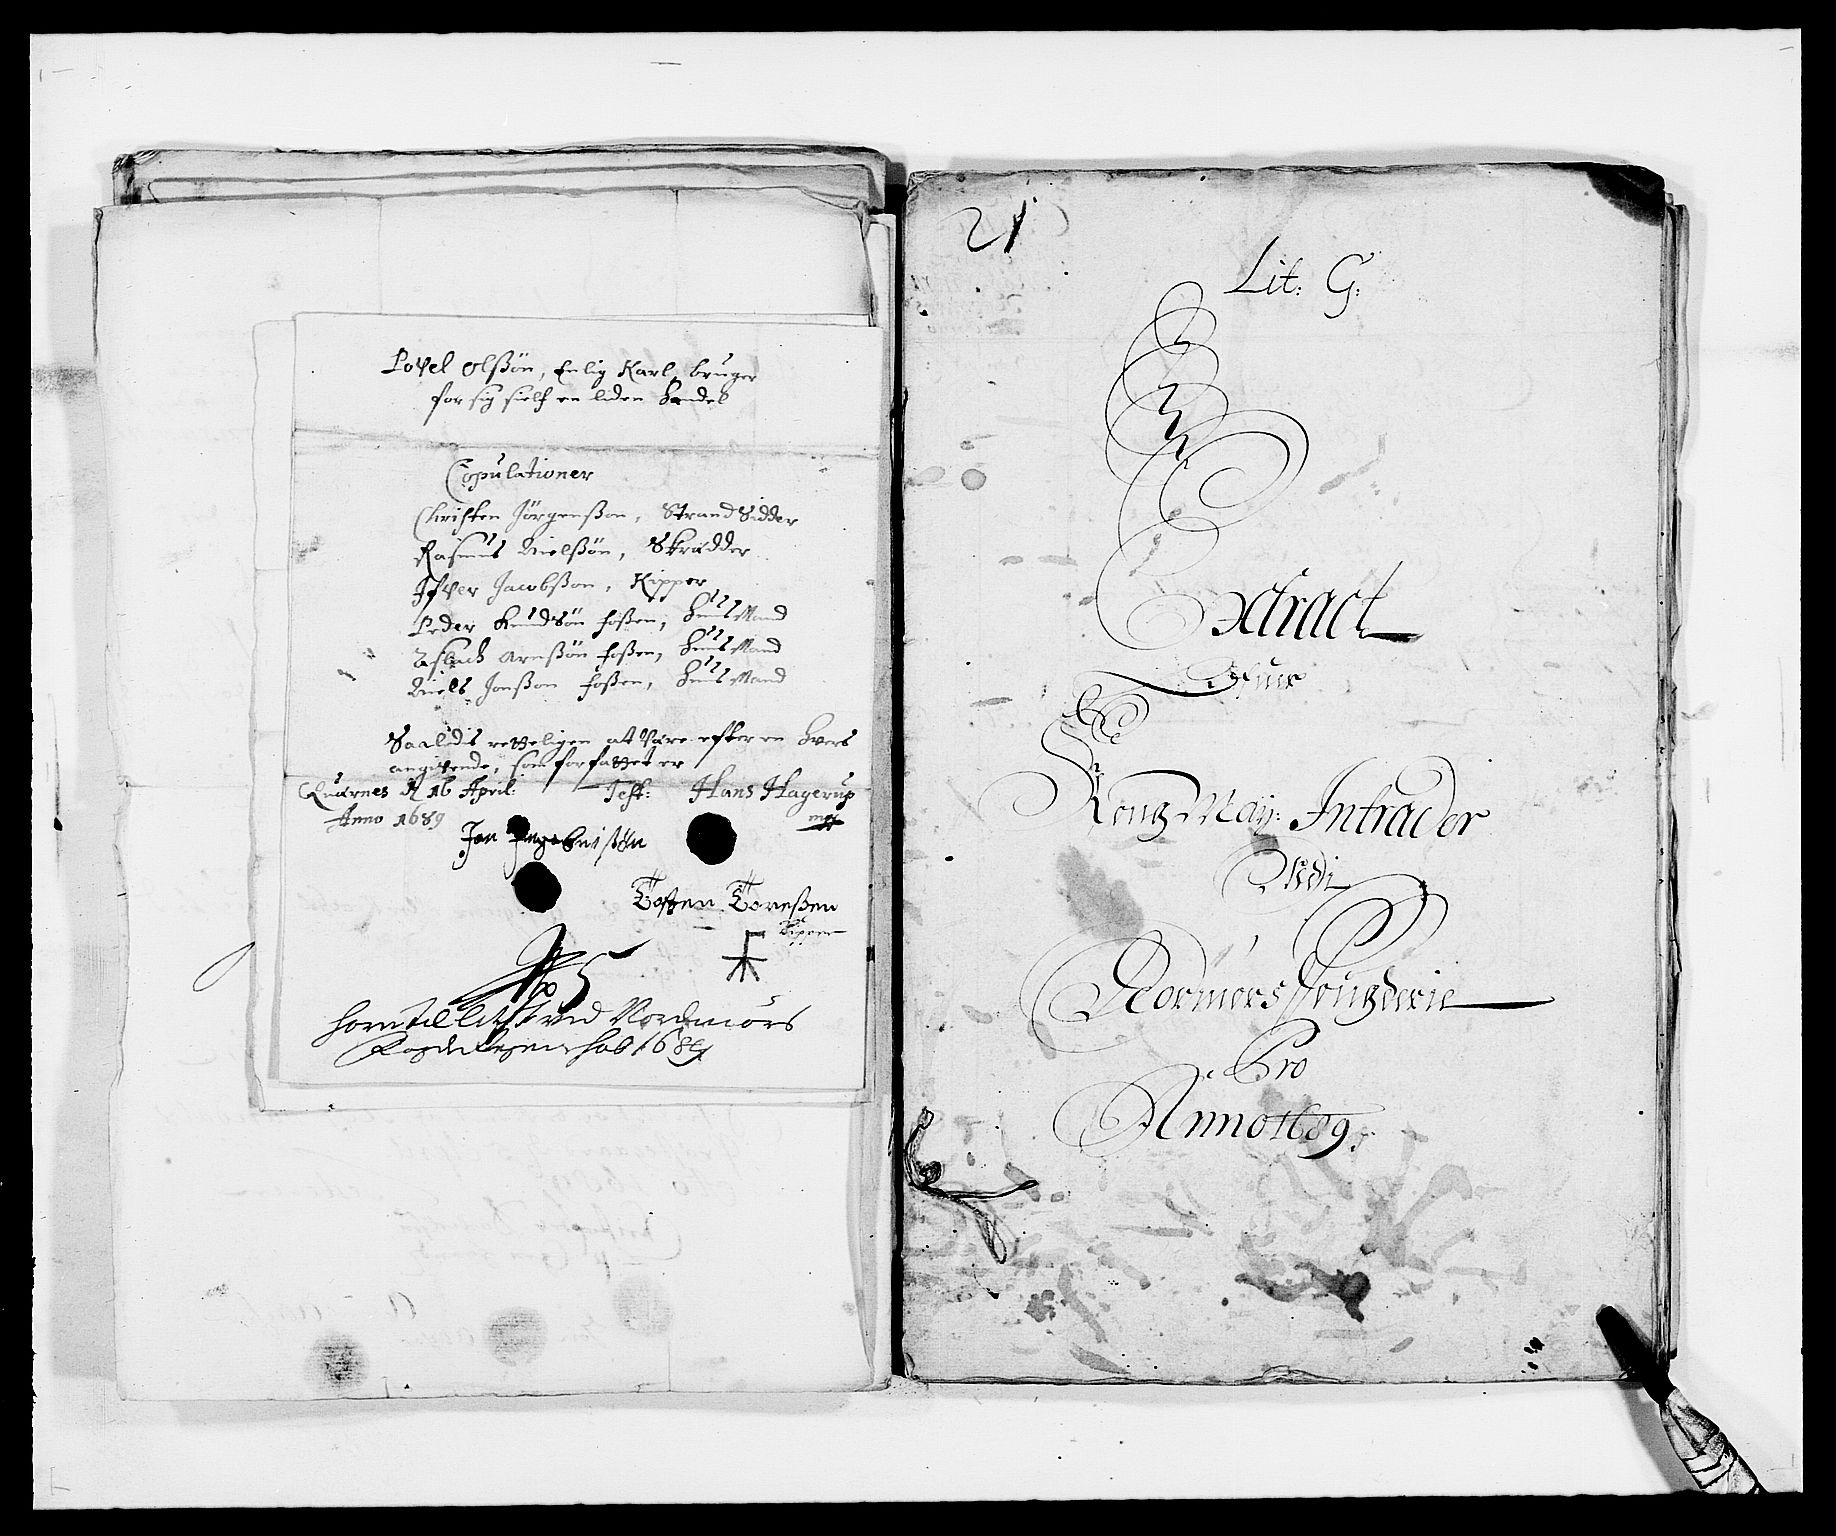 Povel Olßøn, Enlig Karl, bruger
for sig sielf en liden Handel
Copulationer
Christen Jörgenßøn, Strand Sidder
Rasmus Nielßøn, Skrædder
Ifver Jacobßøn, Kipper
Peder Knudsøn Foßen, Huus Mand
Aslach Arneßøn Foßen, Huus Mand
Niels Jonßøn Foßen, Huus Mand
Saaledis retteligen at være efter en hvers
angivende, som forfattet er
Qværnes d. 16 April: Test: Hans Hagerup
Anno 1689 mpr
Jon Ingebritßøn
Tosten Toreßen
Kipper
No 5
Nordmörs
1689
21
Lit: G:
Extract
Ofuer
Kong May: Intrader
Udi
Normørs Fougderie
Pro
Anno 1689.